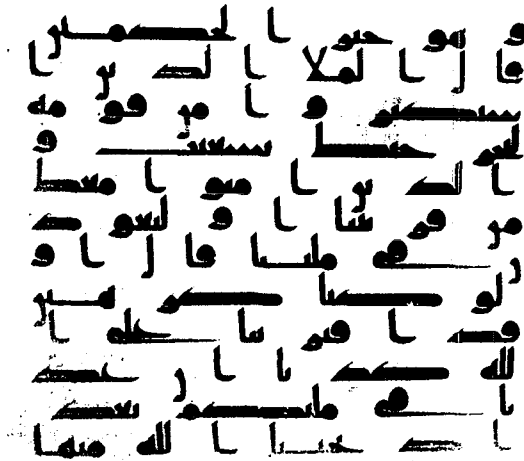 و هو خير الحكمين
قال الملا الذين ا
ستكبروا من قومه
لنخرجنك يشعيب و
الذين امنوا معك
من قريتنا او لتعود
ن في ملتنا قال او
لو كنا كرهين
قد افترينا على ا
لله كذبا ان عد
نا في ملتكم بعد
اذ نجينا الله منها